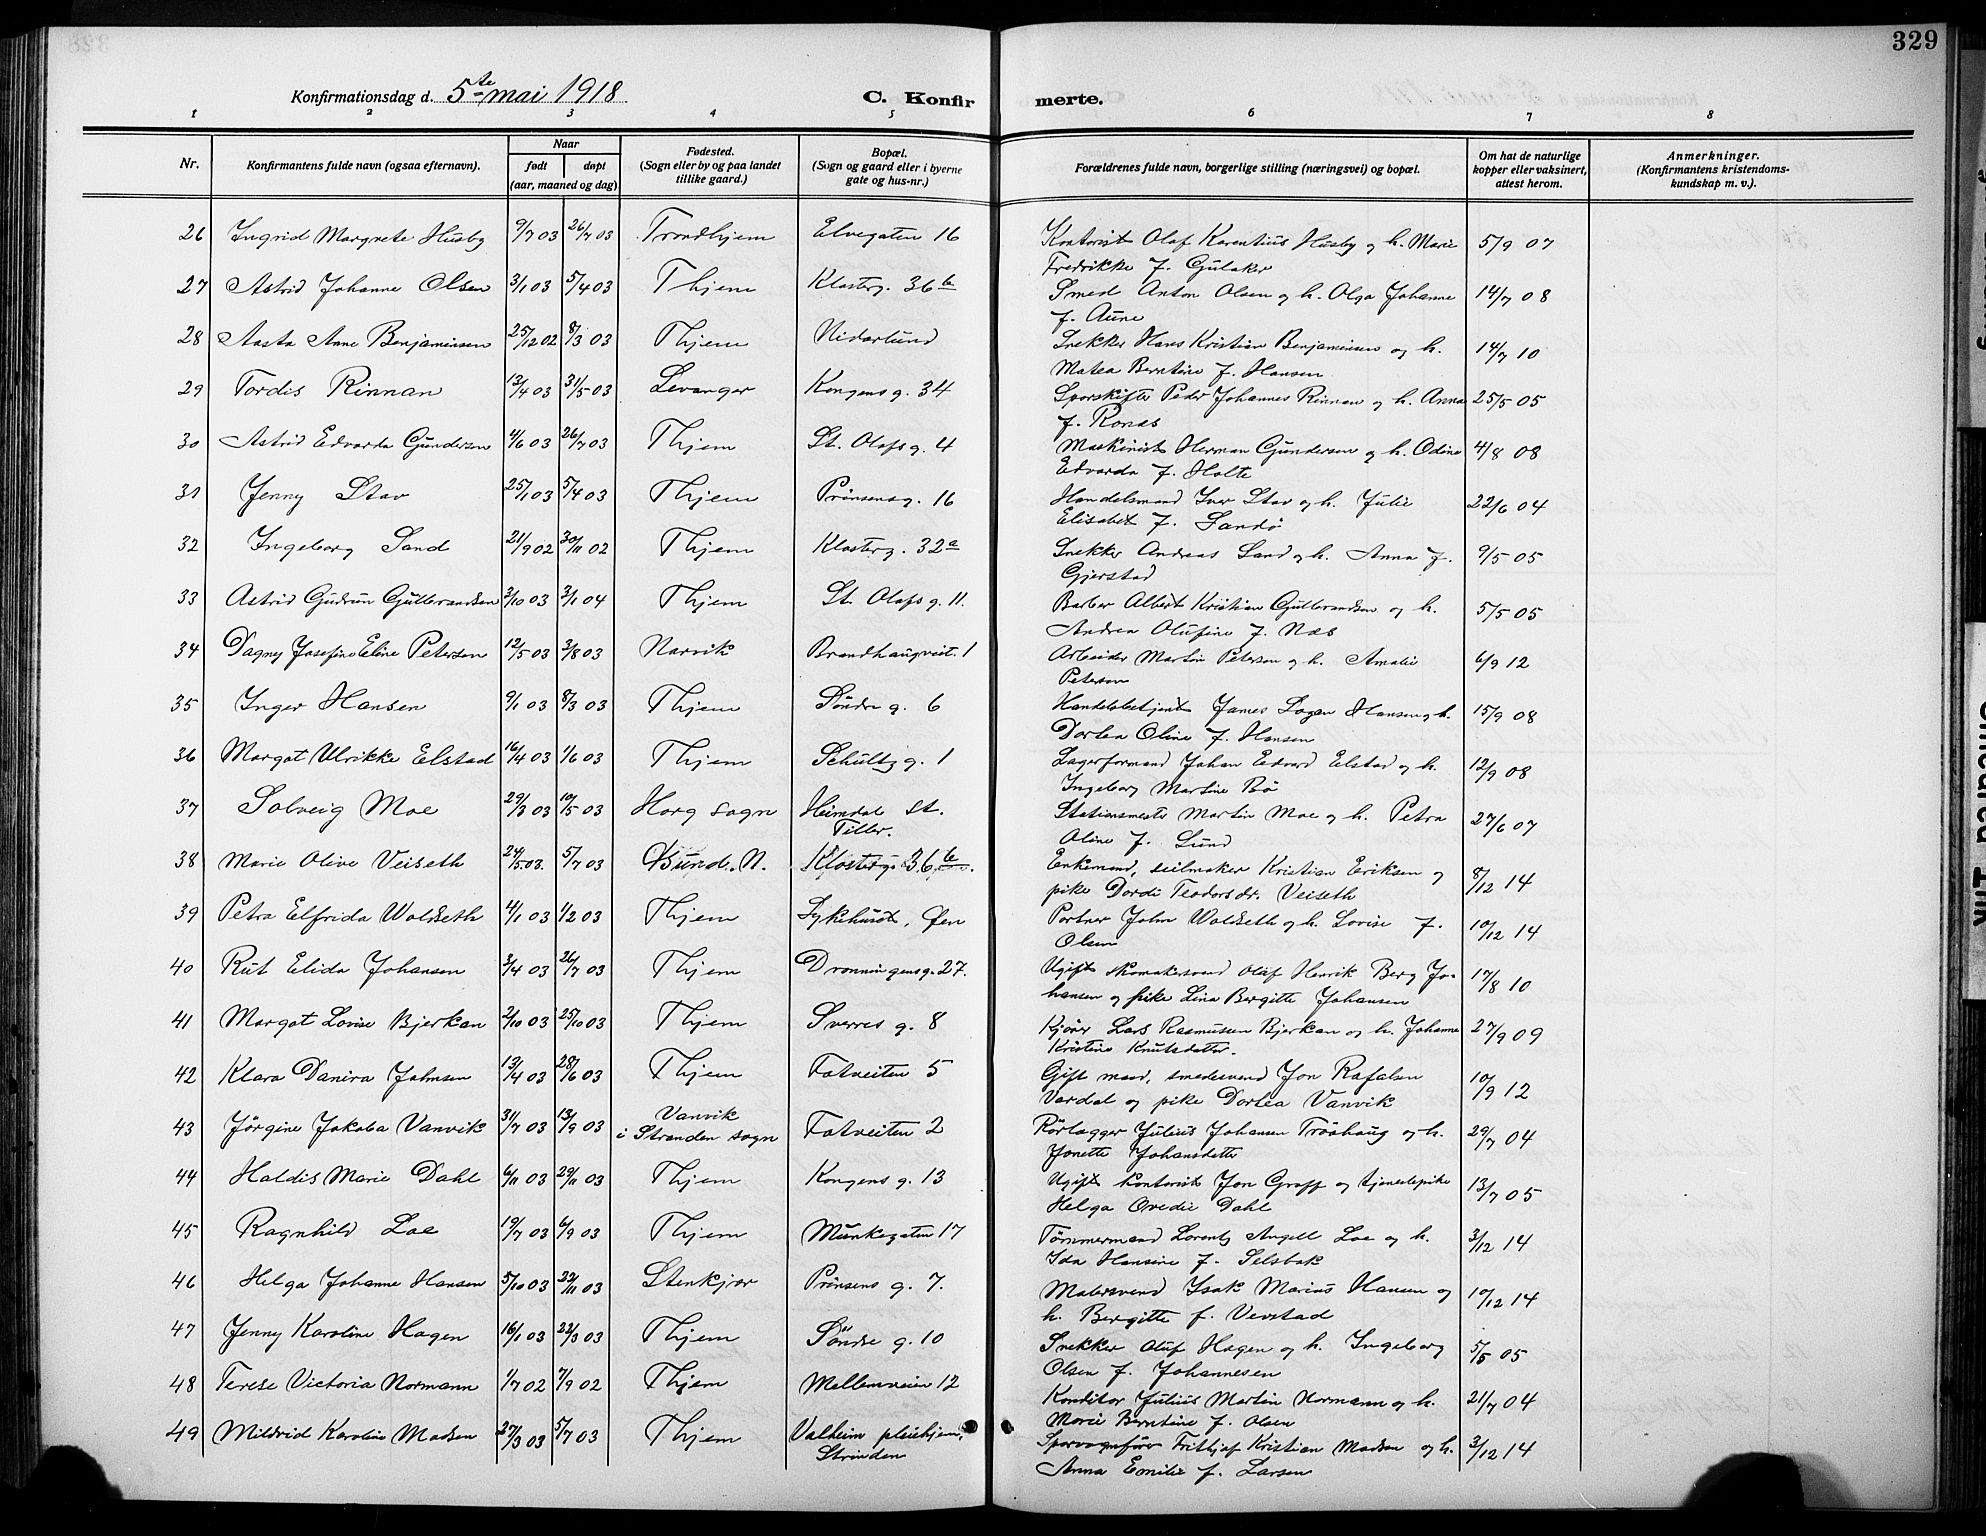 329
Konfirmationsdag d. 5te mai 1918.
C. Konfirmerte.
1 2 3 4 5 6 7 8
Nr. Konfirmantens fulde navn (ogsaa efternavn). Naar født døpt (aar, maaned og dag) Fødested. (Sogn eller by og paa landet tillike gaard.) Bopæl. (Sogn og gaard eller i byerne gate og hus-nr.) Forældrenes fulde navn, borgerlige stilling (næringsvei) og bopæl. Om hat de naturlige kopper eller vaksinert, attest herom. Anmerkninger. (Konfirmantens kristendoms-kundskap m. v.).
26 Ingrid Margrete Husby 9/7 03 26/7 03 Trondhjem Elvegaten 16 Kontorist Olaf Karentius Husby og h. Marie 5/9 07
Fredrikke f. Gulaker
27 Astrid Johanne Olsen 3/1 03 5/4 03 Thjem Klosterg. 36 b Smed Anton Olsen og h. Olga Johanne 14/7 08
f. Aune
28 Aasta Anne Benjaminsen 25/12 02 8/3 03 Thjem Nidarlund Snekker Hans Kristian Benjaminsen og h. 14/7 10
Matea Berntine f. Hansen
29 Tordis Rinnan 13/4 03 31/5 03 Levanger Kongens g. 34 Sporskifter Peder Johannes Rinnan og h. Anna 25/5 05
f. Ronas
30 Astrid Edvarda Gundersen 4/6 03 26/7 03 Thjem St. Olafs g. 4 Maskinist Herman Gundersen og h. Odine 4/8 08
Edvarda f. Holte
31 Jenny Stav 25/1 03 5/4 03 Thjem Prinsensg. 16 Handelsmand Iver Stav og h. Julie 22/6 04
Elisabet f. Sandø
32 Ingeborg Sand 21/9 02 30/11 02 Thjem Klosterg. 32 a Snekker Andreas Sand og h. Anna f. 9/5 05
Gjerstad
33 Astrid Gudrun Gulbrandsen 3/10 03 3/1 04 Thjem St. Olafs g. 11. Barber Albert Kristian Gulbrandsen og h. 5/5 05
Andrea Olufine f. Næs
34 Dagny Josefine Eline Petersen 12/5 03 3/8 03 Narvik Brandhaugveit. 1 Arbeider Martin Petersen og h. Amalie 6/9 12
Petersen
35 Inger Hansen 9/1 03 8/3 03 Thjem Søndre g. 6 Handelsbetjent James Logan Hansen og h. 15/9 08
Dortea Oline f. Hansen
36 Margot Ulrikke Elstad 16/4 03 1/6 03 Thjem Schultz g. 1 Lagerformand Johan Edvard Elstad og h. 12/9 08
Ingeborg Martine Bø
37 Solveig Moe 29/3 03 10/5 03 Horg sogn Heimdal st. Tiller. Stationsmester Martin Moe og h. Petra 27/6 07
Oline f. Lund
38 Marie Olive Veiseth 24/5 03. 5/7 03 Klosterg. 36 b Enkemand, seilmaker Kristian Eriksen og 8/12 14
pike Dordi Teodorsdr. Veiseth
39 Petra Elfrida Woldseth 4/1 03 1/2 03 Thjem Sykehuset, Øen Portner John Woldseth og h. Lovise f. 10/12 14
Olsen
40 Rut Elida Johansen 3/4 03 26/7 03 Thjem Dronningensg. 27. Ugift skomakersvend Olaf Henrik Berg Jo- 17/8 10
hansen og pike Lina Bergitte Johansen
41 Margot Lovise Bjerkan 2/10 03 25/10 03 Thjem Sverres g. 8 Kjører Lars Rasmussen Bjerkan og h. Johanne 27/9 09
Kristine Knutsdatter.
42 Klara Danira Johnsen 13/4 03 28/6 03 Thjem Fotveiten 5 Gift mand, smedesvend Jon Rafalsen 10/9 12
Vardal og pike Dortea Vanvik
43 Jørgine Jakoba Vanvik 31/7 03 13/9 03 Vanvik i Stranden sogn Fotveiten 2 Rørlægger Julius Johansen Trøahaug og h. 29/7 04
Jonette Johansdatter
44 Haldis Marie Dahl 6/11 03 29/11 03 Thjem Kongens g. 13 Ugift kontorist Jon Graff og tjenestepike 13/7 05
Helga Ovedie Dahl
45 Ragnhild Loe 19/7 03 6/9 03 Thjem Munkegaten 17 Tømmermand Lorentz Angell Loe og h. 3/12 14
Ida Hansine f. Selsbak
46 Helga Johanne Hansen 5/10 03 22/11 03 Stenkjær Prinsens g. 7. Malersvend Isak Marius Hansen og 10/12 14
h. Bergitte f. Verstad
47 Jenny Karoline Hagen 16/1 03 22/3 03 Thjem Søndre g. 10 Snekker Oluf Hagen og h. Ingeborg 5/5 05
Olsen f. Johannesen
48 Terese Victoria Normann 1/7 02 7/9 02 Thjem Mellemveien 12 Konditor Julius Martin Normann og h. 21/7 04
Marie Berntine f. Olsen
49 Mildrid Karoline Madsen 27/3 03 5/7 03 Thjem Valheim pleiehjem, Strinden Sporvognfører Frithjof Kristian Madsen og h. 3/12 14
Anna Emilie f. Larsen